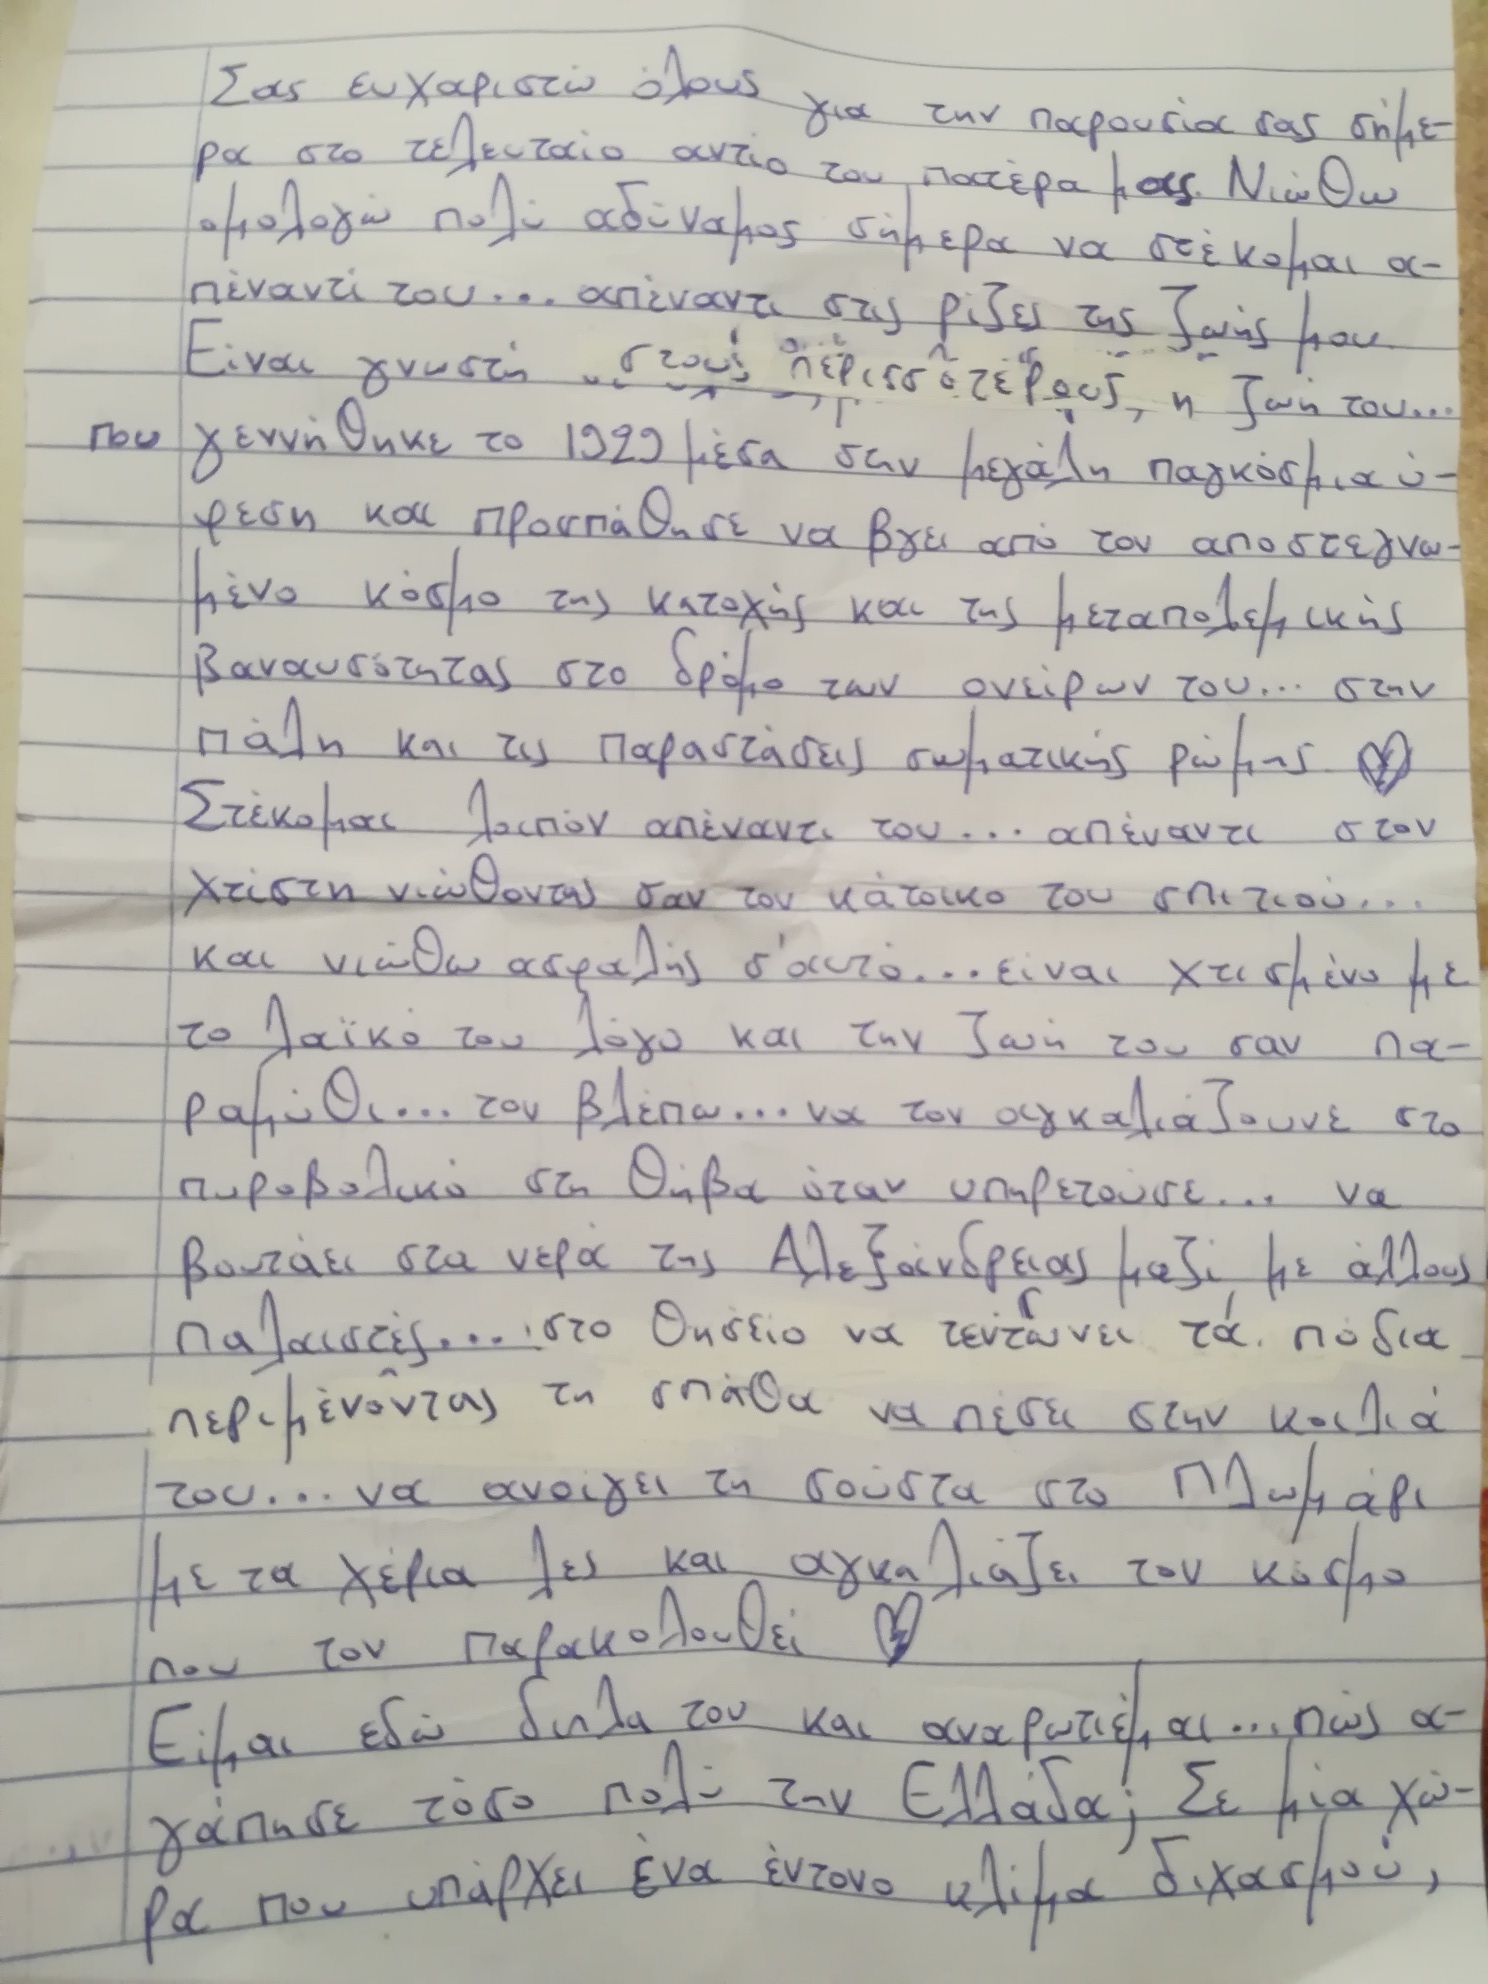 Σας ευχαριστώ όλους για την παρουσία σας σήμε-
ρα στο τελευταίο αντίο του πατέρα μας. Νιώθω
ομολογώ πολύ αδύναμος σήμερα να στέκομαι α-
πέναντί του... απέναντι στις ρίζες της ζωής μου
Είναι γνωστή στους περισσότερους, η ζωή του...
που γεννήθηκε το 1929 μέσα στην μεγάλη παγκόσμια ύ-
φεση και προσπάθησε να βγει από τον αποστεγνω-
μένο κόσμο της κατοχής και της μεταπολεμικής
βαναυσότητας στο δρόμο των ονείρων του... στην
πάλη και τις παραστάσεις σωματικής ρώμης
Στέκομαι λοιπόν απέναντι του... απέναντι στον
χτίστη νιώθοντας σαν τον κάτοικο του σπιτιού...
και νιώθω ασφαλής σ'αυτό... είναι χτισμένο με
το λαϊκό του λόγο και την ζωή του σαν πα-
ραμύθι... τον βλέπω... να τον αγκαλιάζουνε στο
πυροβολικό στη Θήβα όταν υπηρετούσε... να
βουτάει στα νερά της Αλεξάνδρειας μαζί με άλλους
παλαιστές.... στο Θησείο να τεντώνει τα πόδια
περιμένοντας τη σπάθα να πέσει στην κοιλιά
του... να ανοίγει τη σούστα στο Πλωμάρι
με τα χέρια λες και αγκαλιάζει τον κόσμο
που τον παρακολουθεί
Είμαι εδώ δίπλα του και αναρωτιέμαι... πώς α-
γάπησε τόσο πολύ την Ελλάδα; Σε μία χώ-
ρα που υπάρχει ένα έντονο κλίμα διχασμού,